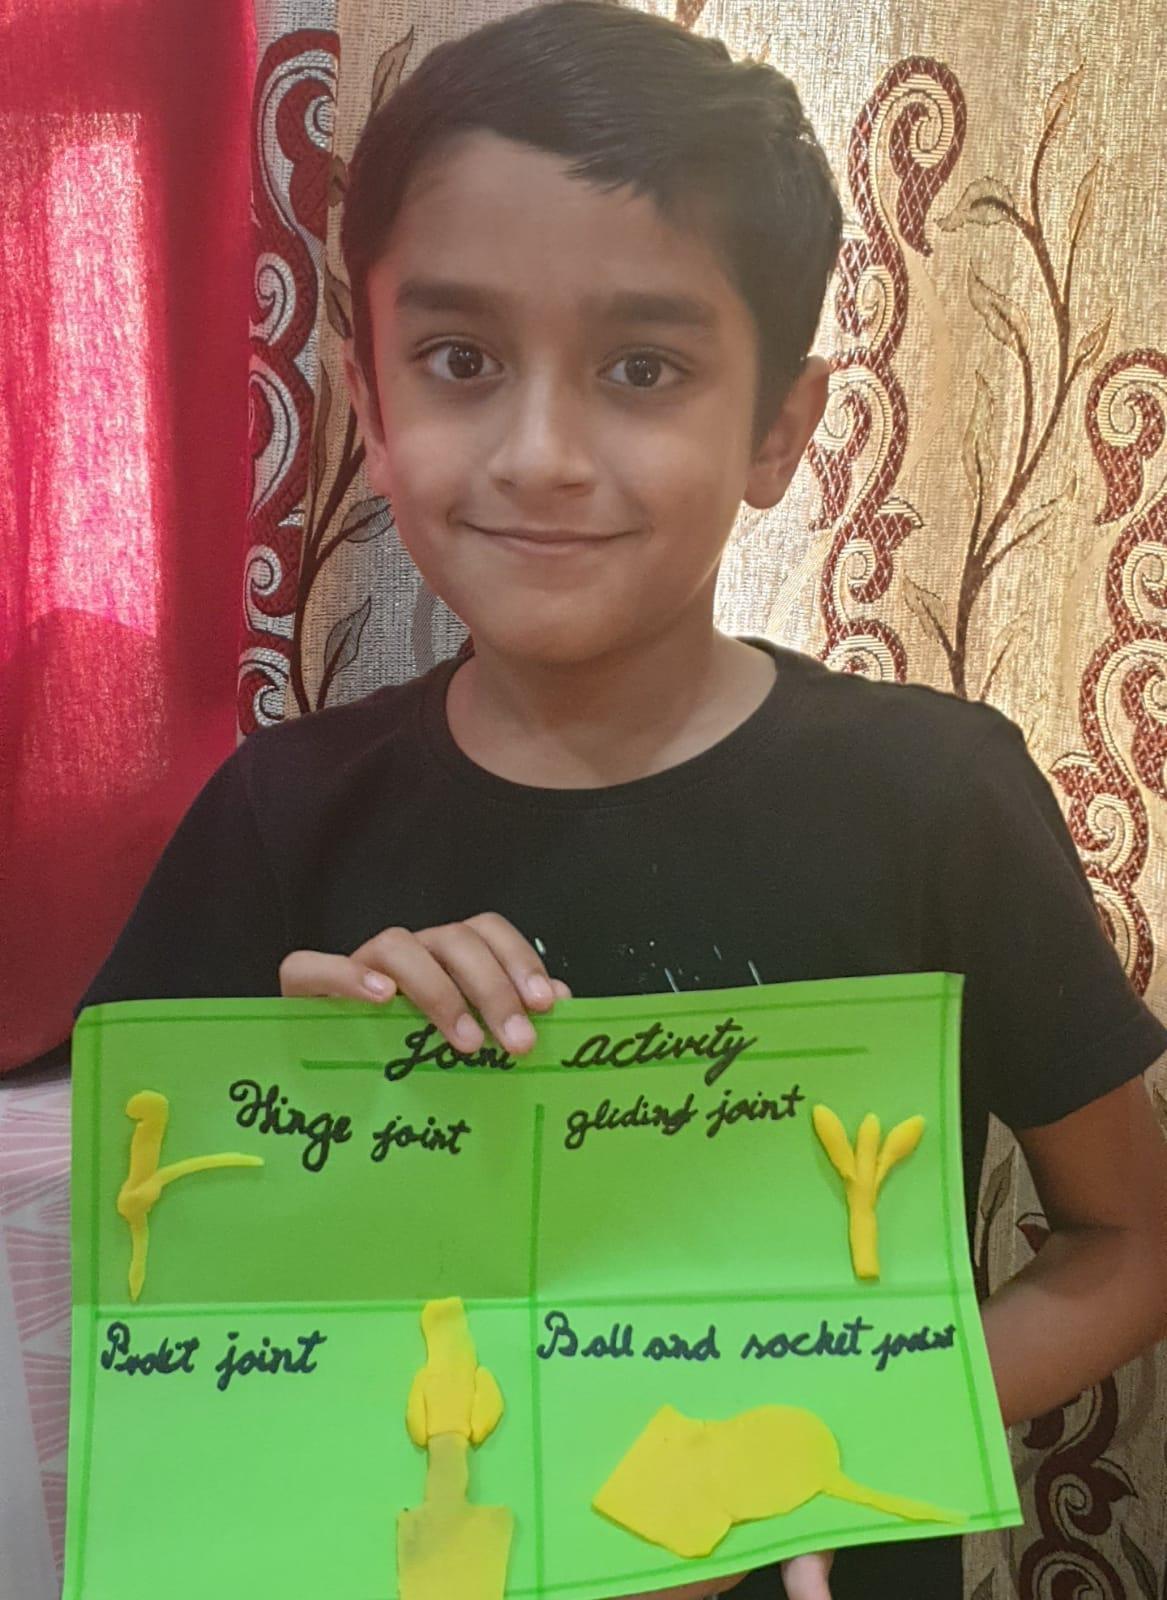 Joint activity
Hinge joint
gliding joint
Pivot joint
Ball and socket joint